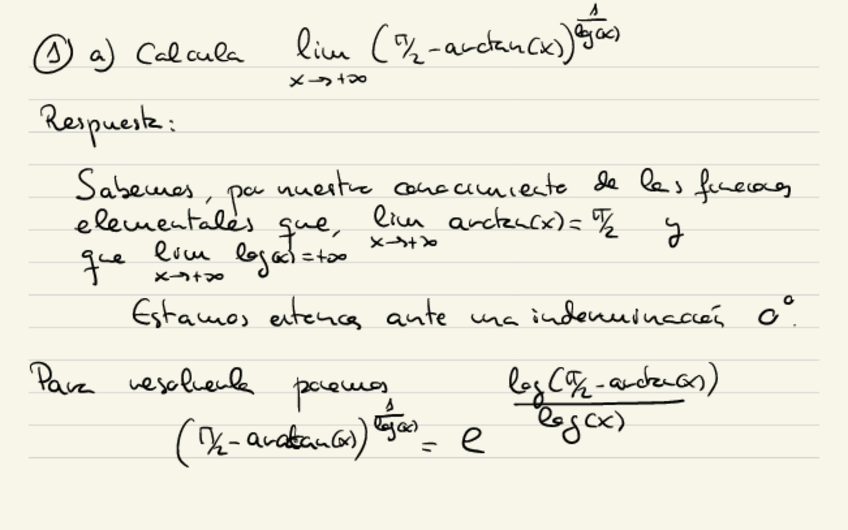 ① a) Calcula lim x→+∞ (π/2 - arctan(x))^(1/log(x))
Respuesta:
Sabemos, por nuestro conocimiento de las funciones
elementales que, lim x→+∞ arctan(x) = π/2 y
que lim x→+∞ log(x) = +∞
Estamos entonces ante una indeterminación 0⁰.
Para resolverla ponemos
(π/2 - arctan(x))^(1/log(x)) = e^(log(π/2 - arctan(x))/log(x))